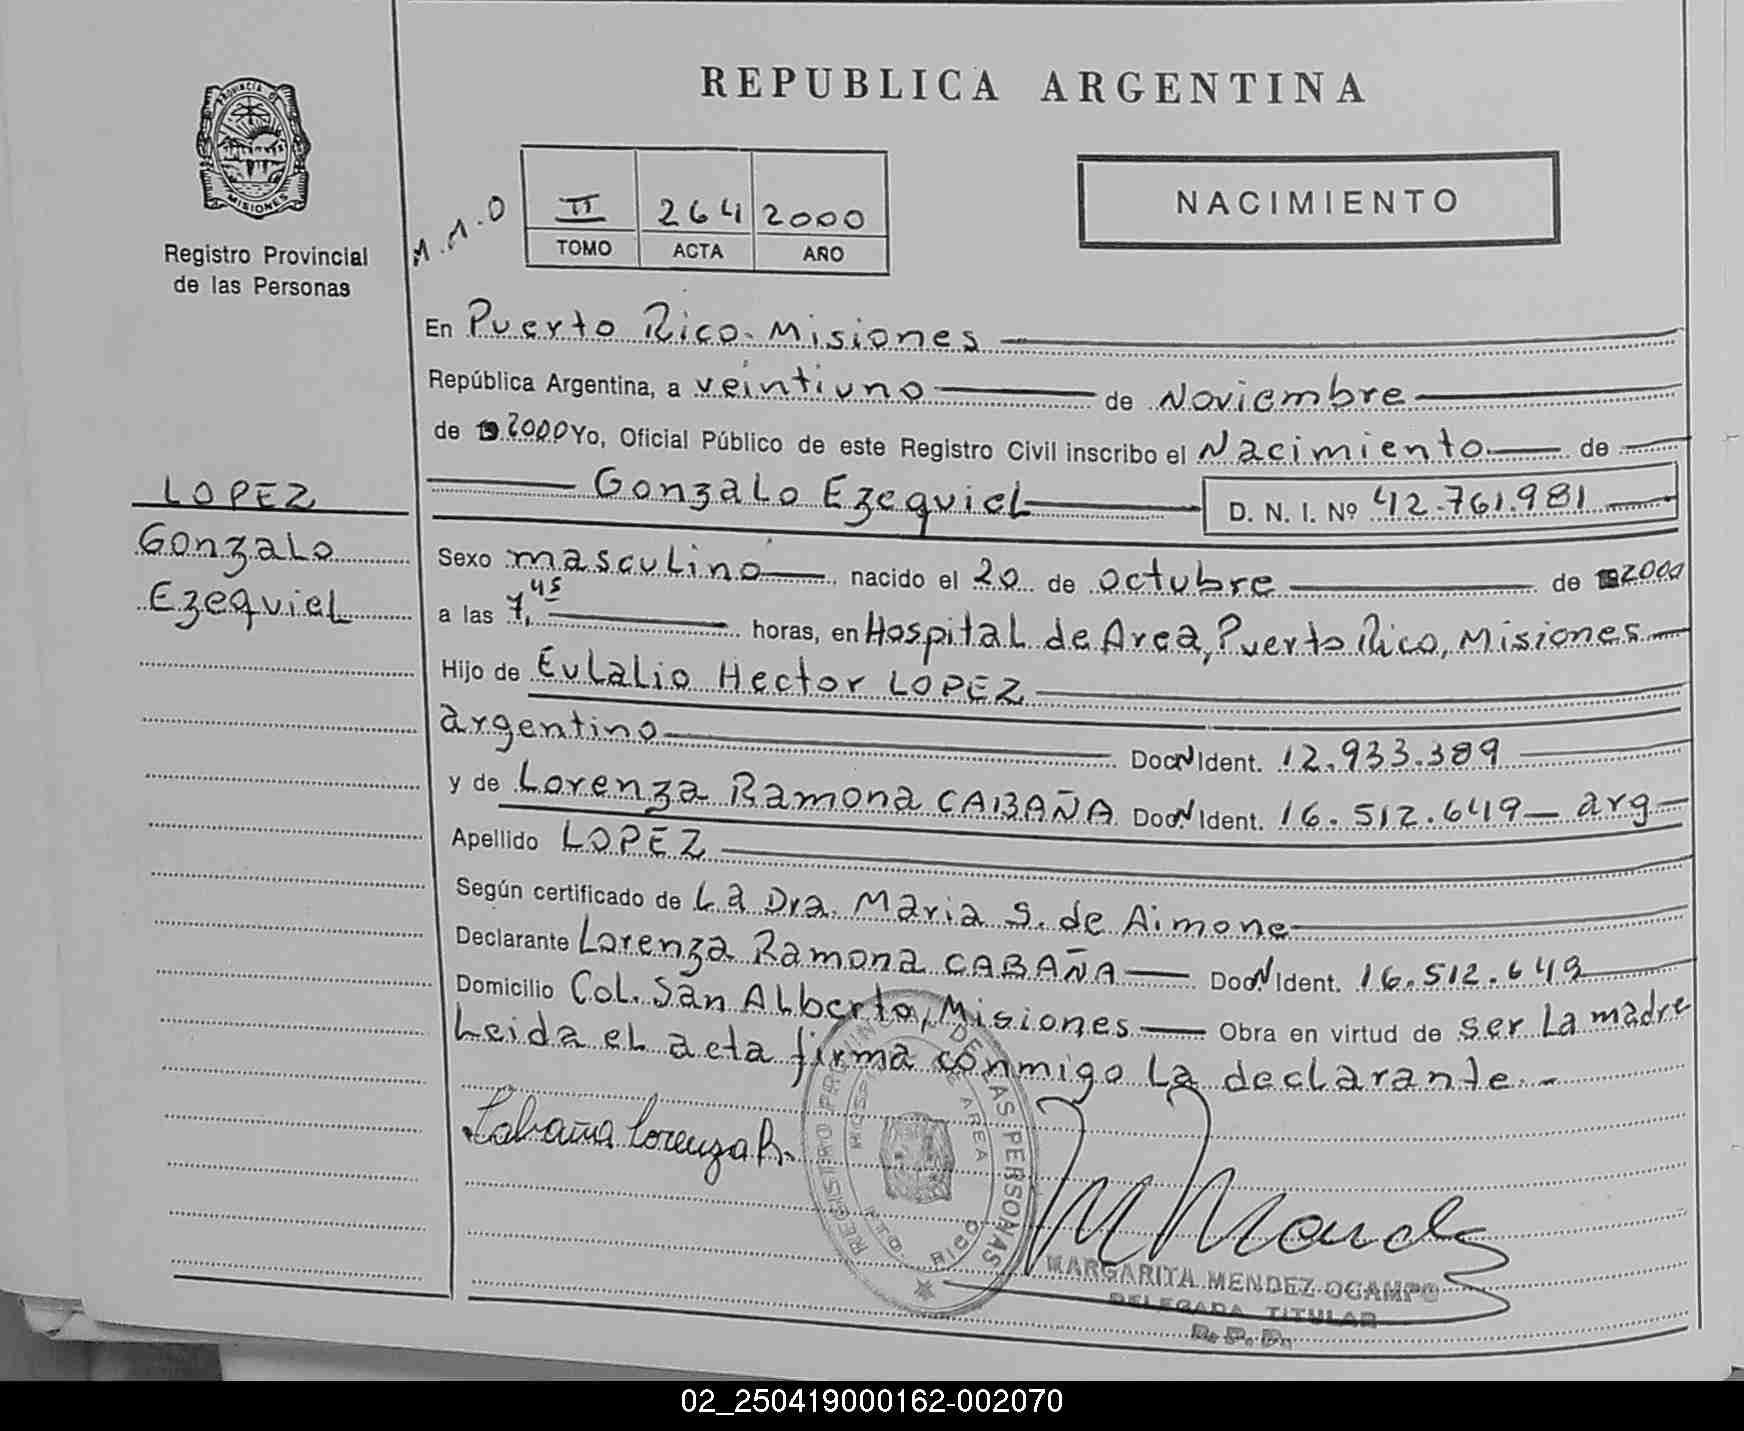 REPUBLICA ARGENTINA
PROVINCIA DE
MISIONES
Registro Provincial
de las Personas
M.M.O
II 264 2000
TOMO ACTA AÑO
NACIMIENTO
En Puerto Rico. Misiones
República Argentina, a veintiuno de Noviembre
de 2000 Yo, Oficial Público de este Registro Civil inscribo el Nacimiento de
Gonzalo Ezequiel D. N. I. Nº 42.761.981
LOPEZ
Gonzalo
Ezequiel
Sexo masculino, nacido el 20 de octubre de 2000
a las 7,45 horas, en Hospital de Area, Puerto Rico, Misiones
Hijo de Eulalio Hector LOPEZ
argentino Doc. N Ident. 12.933.389
y de Lorenza Ramona CABAÑA Doc. N Ident. 16.512.649 - arg
Apellido LOPEZ
Según certificado de La Dra. Maria S. de Aimone
Declarante Lorenza Ramona CABAÑA Doc. N Ident. 16.512.649
Domicilio Col. San Alberto, Misiones Obra en virtud de ser La madre
Leida el acta firma conmigo La declarante.-
Cabaña Lorenza R.
REGISTRO PROVINCIAL DE LAS PERSONAS
AREA
PTO. RICO
MARGARITA MENDEZ OCAMPO
DELEGADA TITULAR
02_250419000162-002070